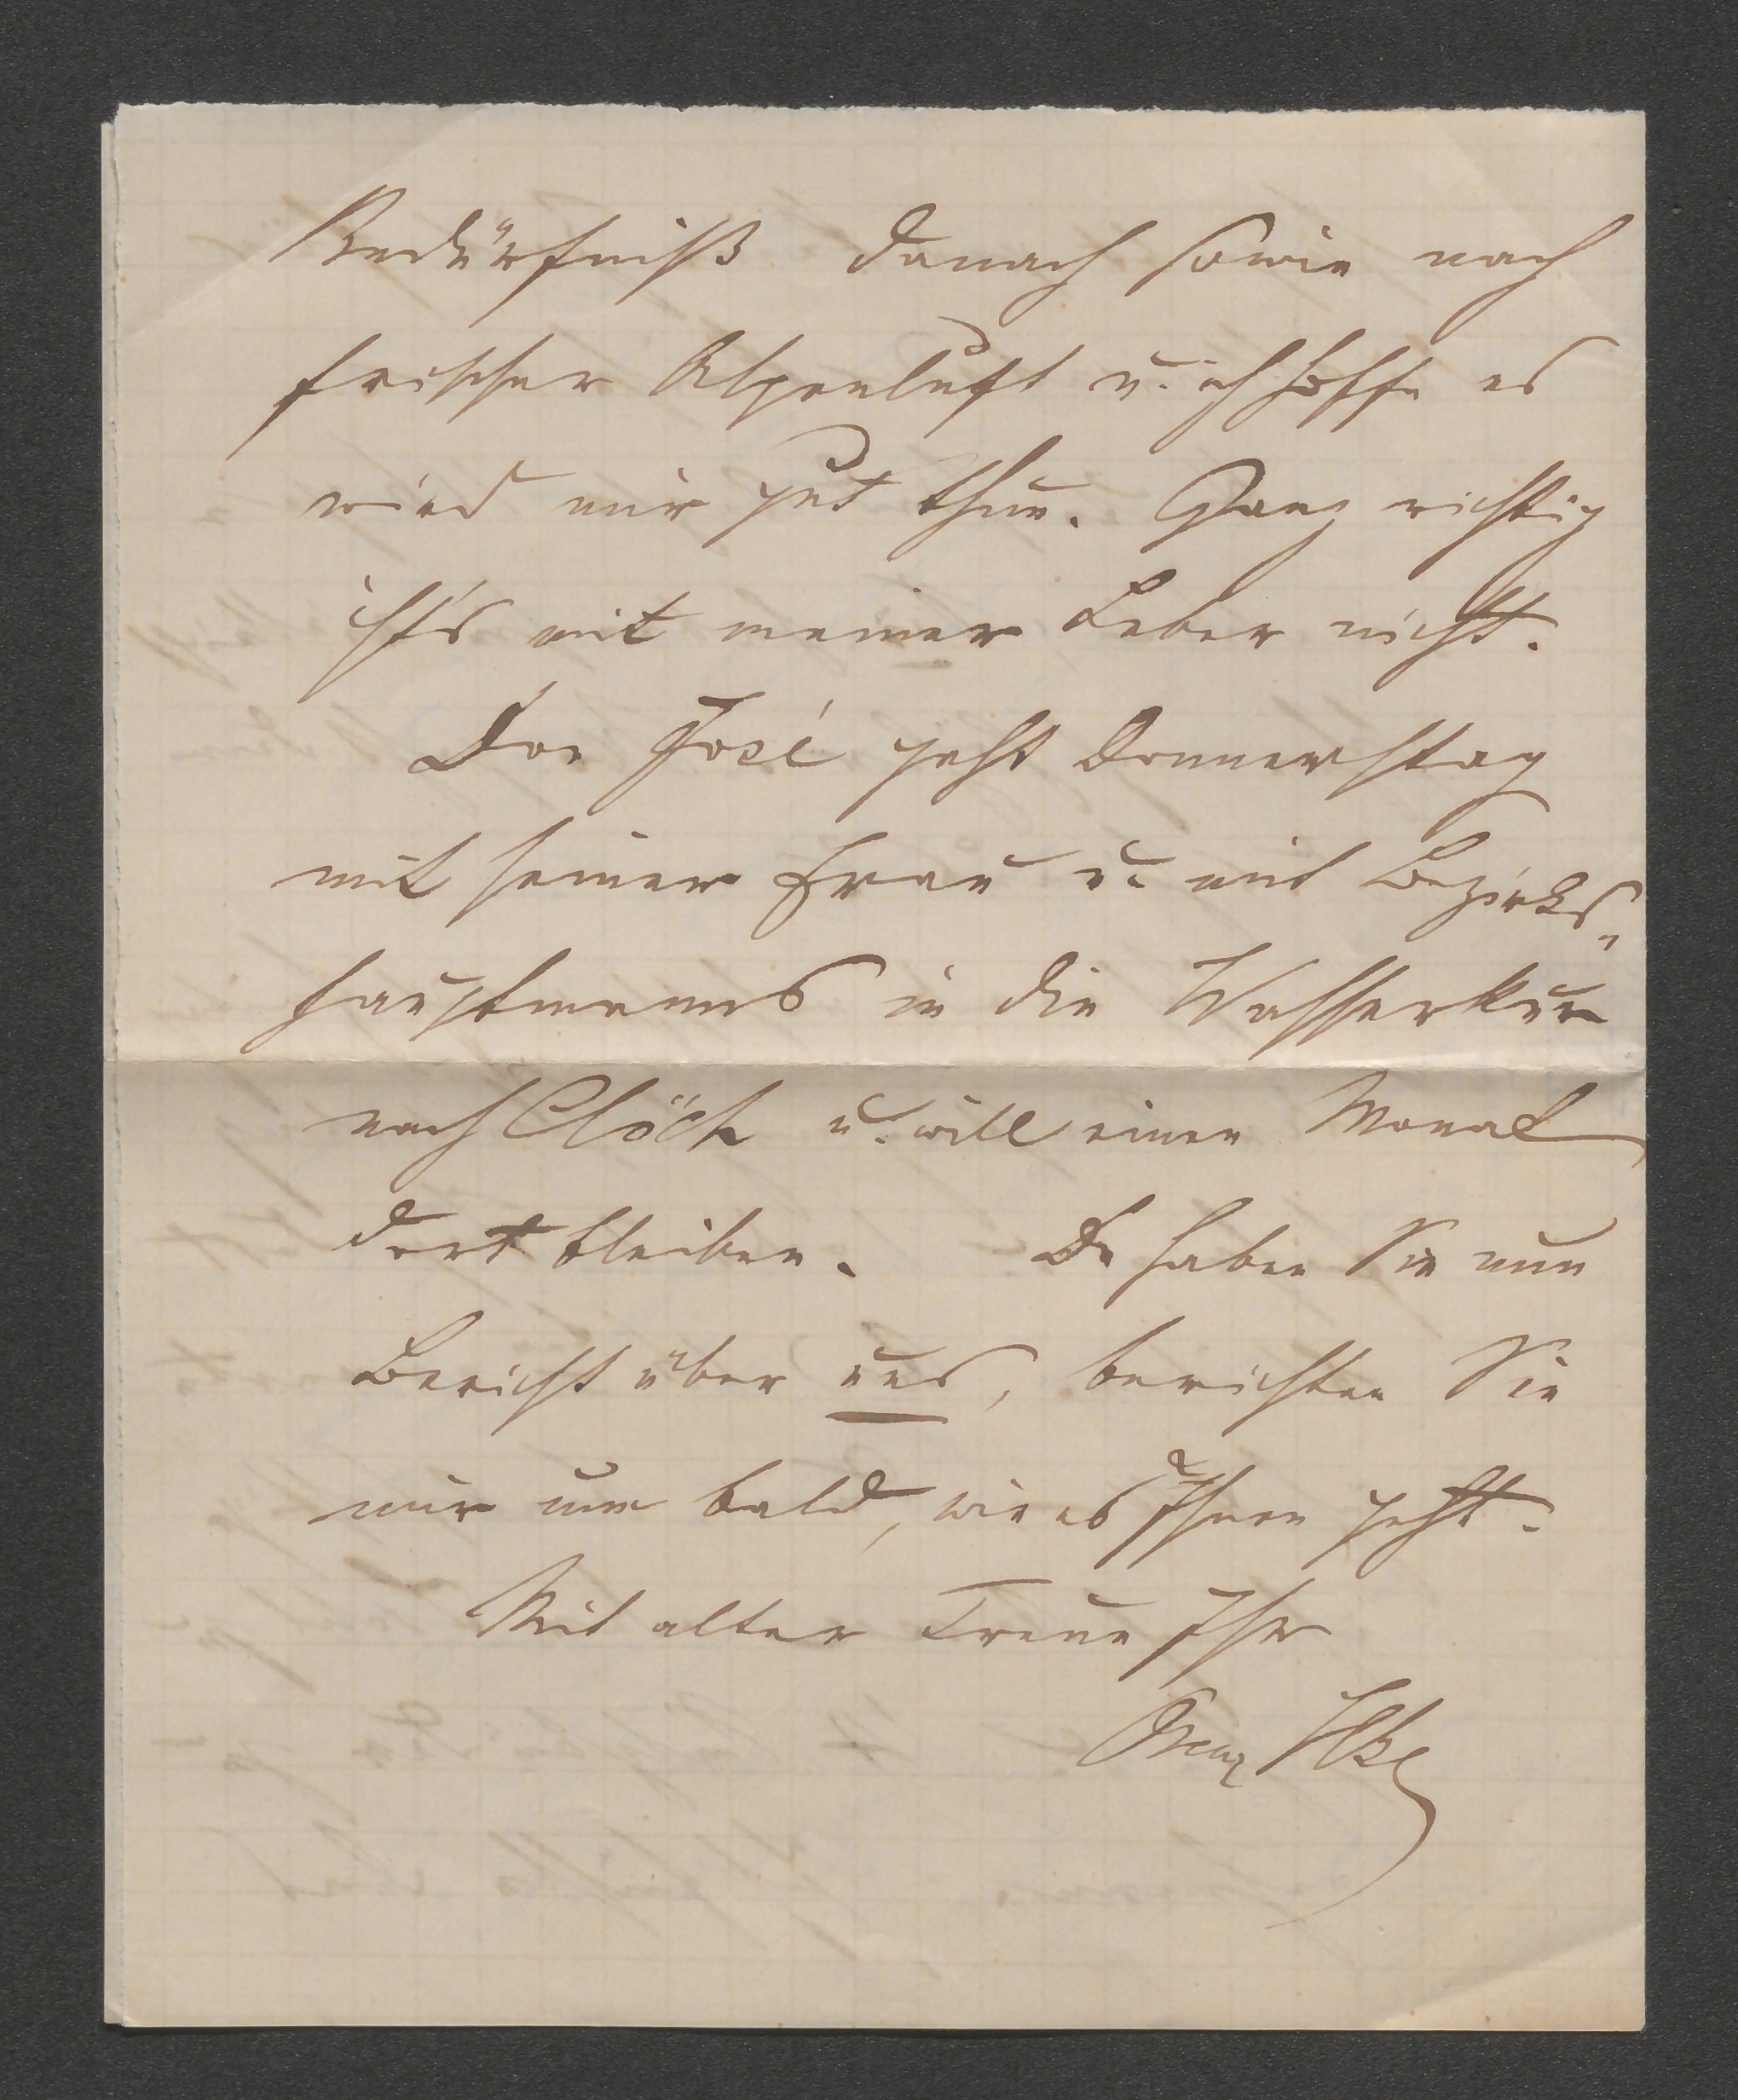 Bedürfniß danach sowie nach
frischer Alpenluft u. ich hoffe es
wird mir gut thun. Ganz richtig
ist's mit meiner Leber nicht.
Don José geht Donnerstag
mit seiner Frau u. mit Bezirks„
hauptmanns in die Wasserkur
nach u. will einen Monat
dort bleiben. Da haben Sie nun
Bericht über uns, berichten Sie
mir nun bald, wie es Ihnen geht.
Mit alter Treue Ihr